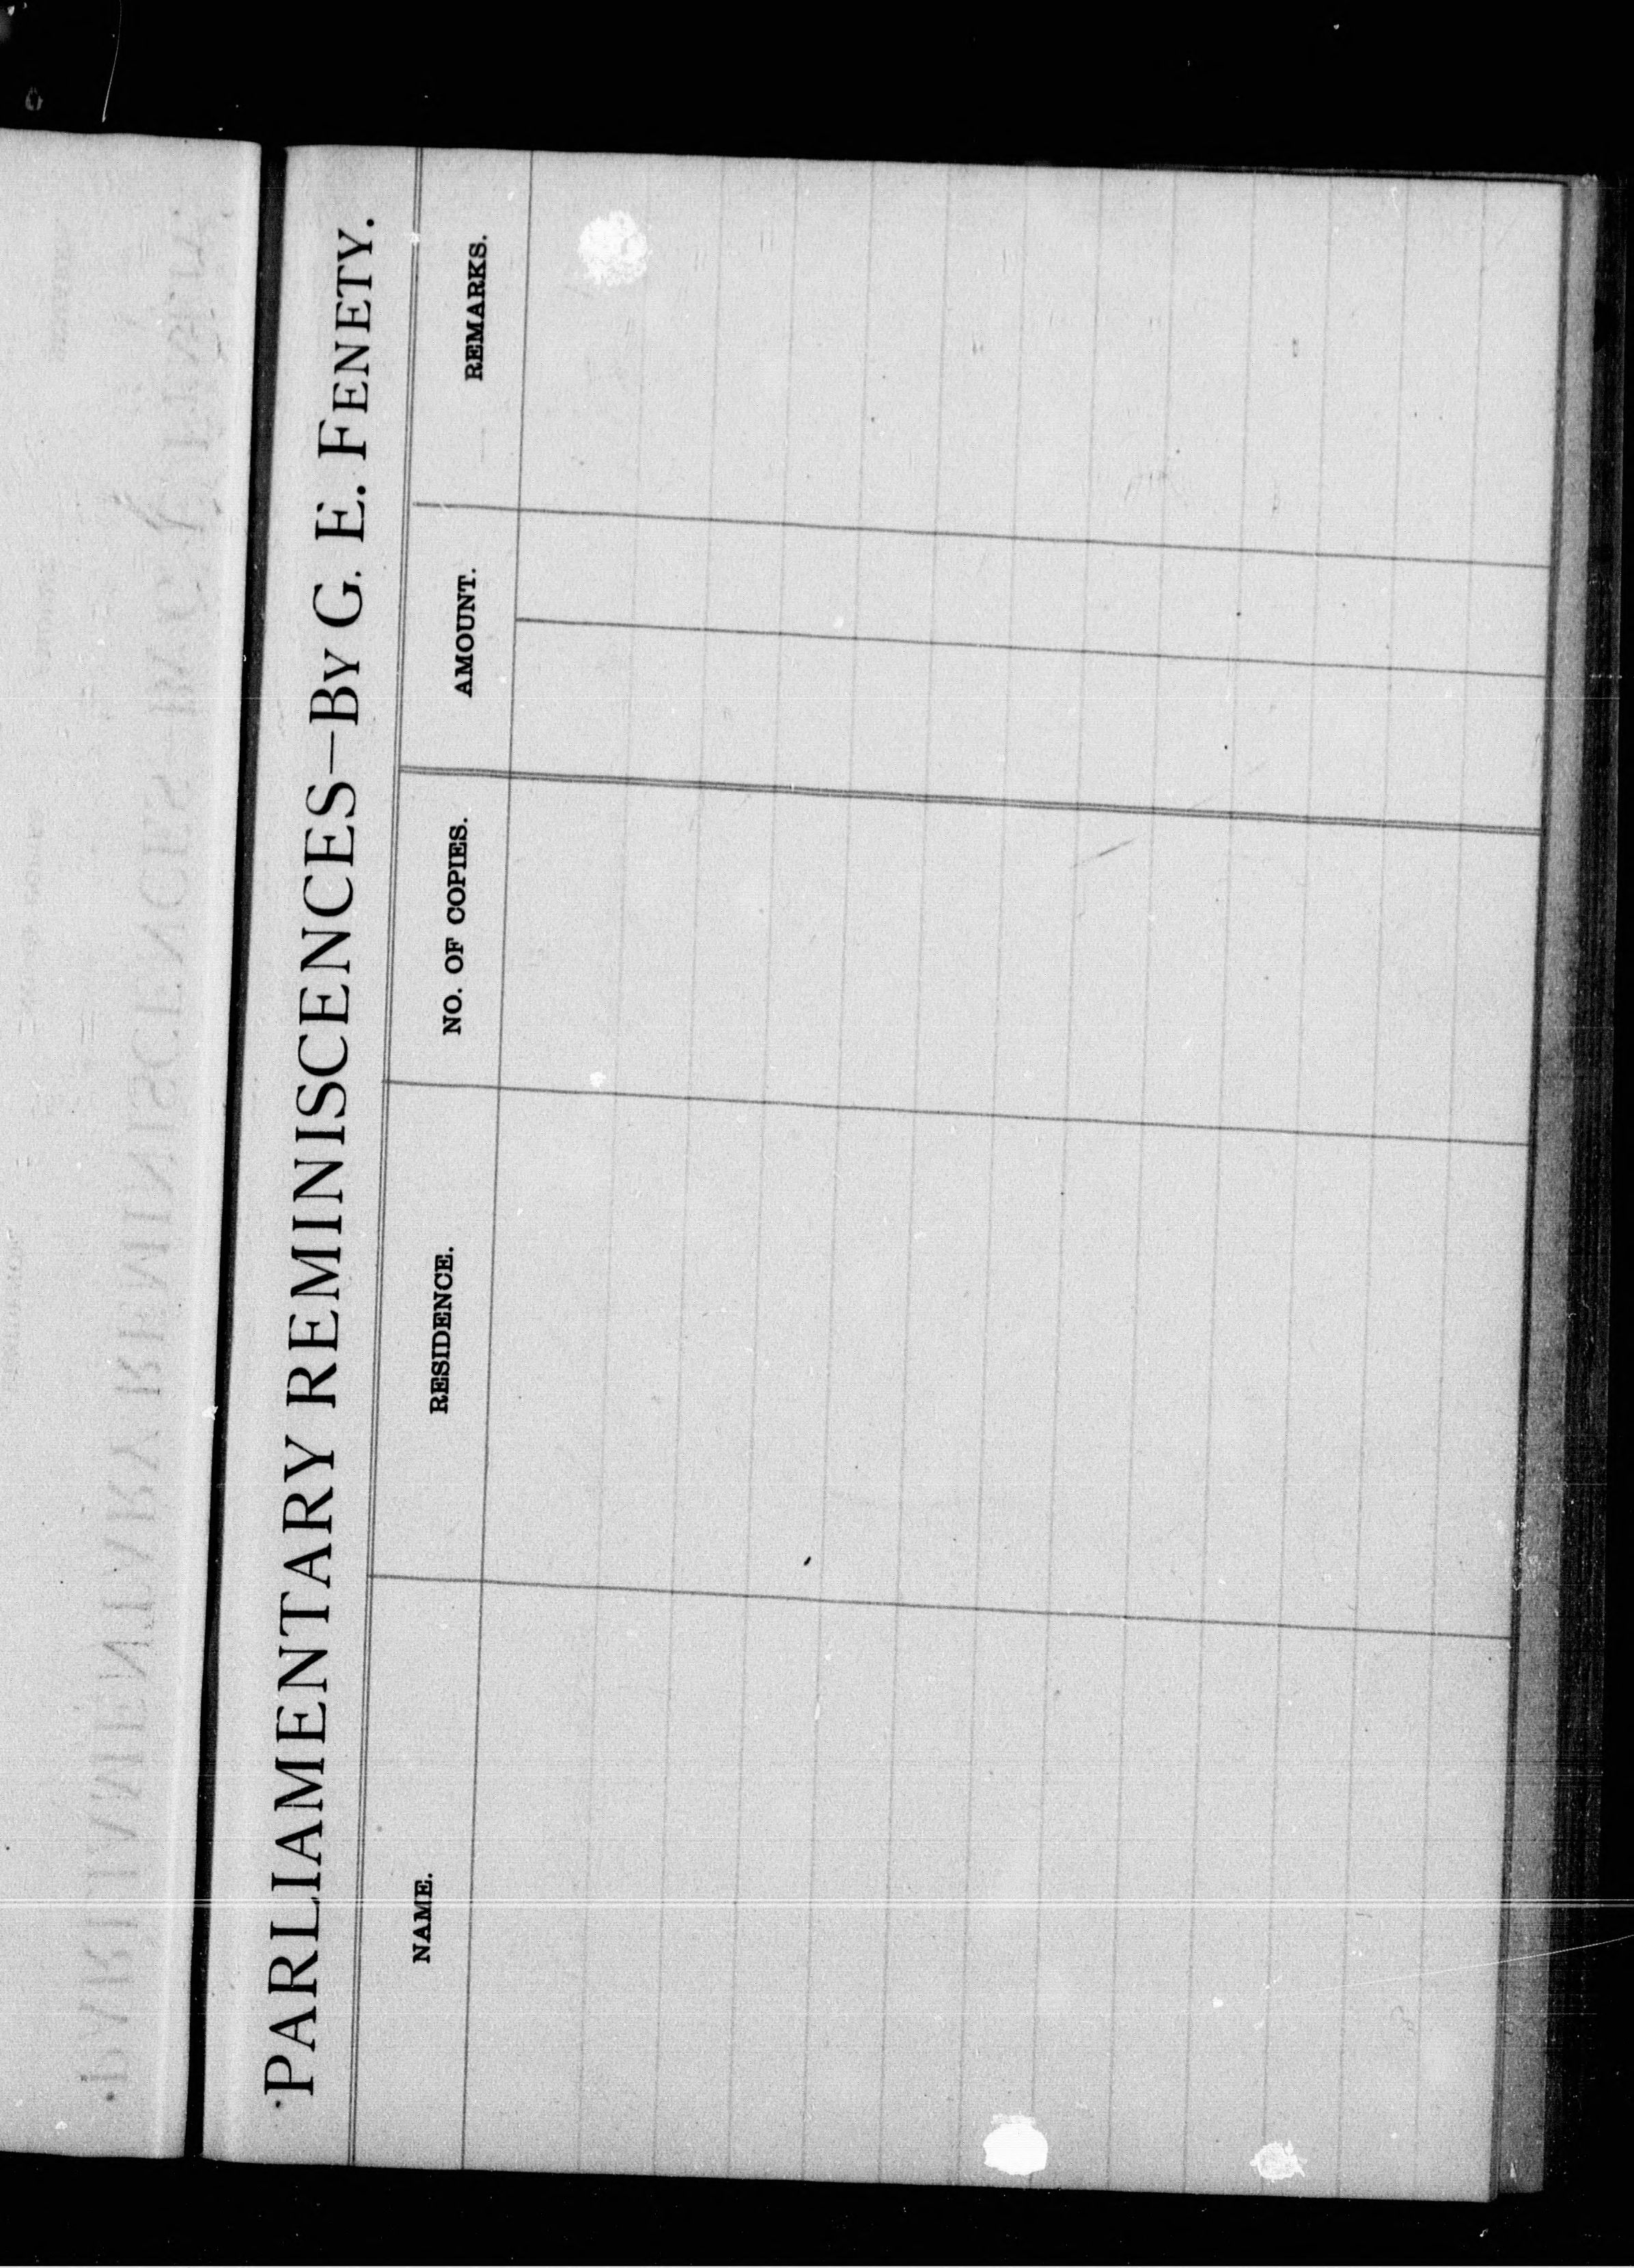 PARLIAMENTARY REMINISCENCES—BY G. E. FENETY.
NAME. RESIDENCE. NO. OF COPIES. AMOUNT. REMARKS.